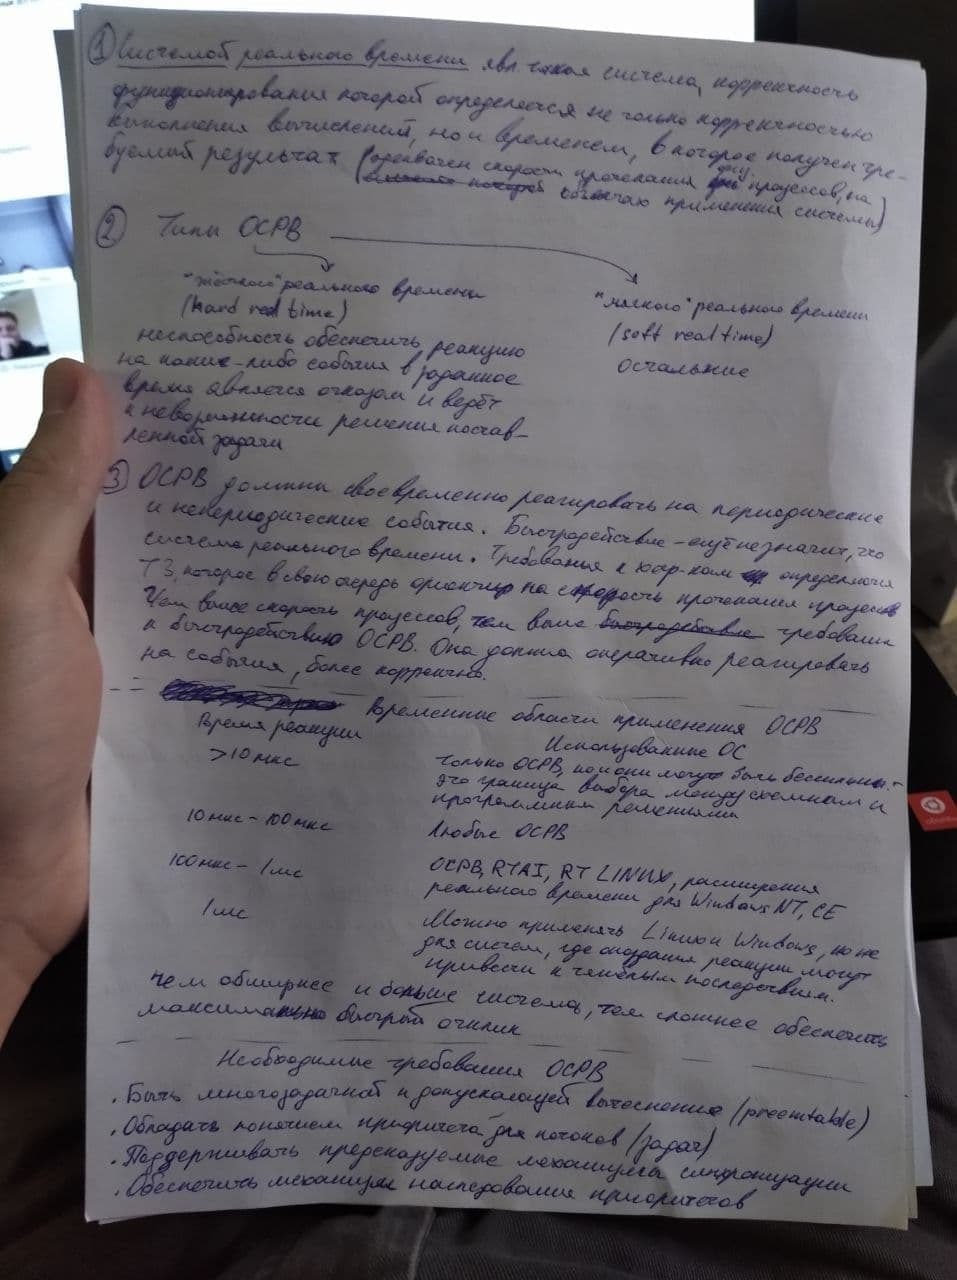 1 Системой реального времени явл. такая система, корректность
функционирования которой определяется не только корректностью
выполнения вычислений, но и временем, в которое получен тре-
буемый результат (адекватен скорости протекания физ. процессов, на
применения системы)
2 Типы ОСРВ
"жёсткого" реального времени
"мягкого" реального времени
(hard real time)
(soft real time)
неспособность обеспечить реакцию
остальные
на какие-либо события в заданное
время является отказом и ведёт
к невозможности решения постав-
ленной задачи
3 ОСРВ должны своевременно реагировать на периодические
и непериодические события. Быстродействие - ещё не значит, что
система реального времени. Требования к хар-кам определяются
ТЗ, которое в свою очередь ориентир на скорость протекания процессов
Чем выше скорость процессов, тем выше быстродействие требования
к быстродействию ОСРВ. Она должна оперативно реагировать
на события, более корректно.
Временные области применения ОСРВ
Время реакции
Использованные ОС
>10 мкс
только ОСРВ, но и они могут быть бессильны -
это граница выбора между схемным и
программным решениями
10 мкс - 100 мкс
Любые ОСРВ
100 мкс - 1 мс
ОСРВ, RTAI, RT LINUX, расширения
реального времени для Windows NT, CE
1 мс
Можно применять Linux и Windows, но не
для систем, где опоздания реакции могут
привести к тяжёлым последствиям.
Чем обширнее и больше система, тем сложнее обеспечить
максимально быстрый отклик
Необходимые требования ОСРВ
. Быть многозадачной и допускающей вытеснение (preemtable)
. Обладать понятием приоритета для потоков (задач)
. Поддерживать предсказуемые механизмы синхронизации
. Обеспечить механизм наследования приоритетов
ubuntu